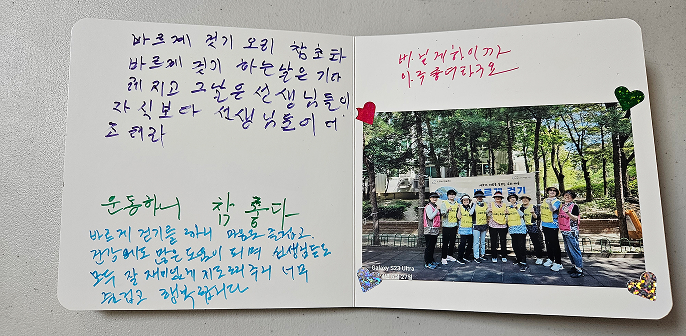 바르게 걷기 오리 참 초타
바르게 걷기 하는날은 기다
레 지고 그날은 선생님들이
자식보다 선생님들이 더
조혀라
운동하니 참 좋다
바르게 걷기를 하니 마음도 즐겁고
건강에도 많은 도움이 되며 선생님들도
모두 잘 재미있게 지도해주셔 너무
즐겁고 행복합니다
아주 좋더라구요
바르게 걷기
Galaxy S23 Ultra
27일